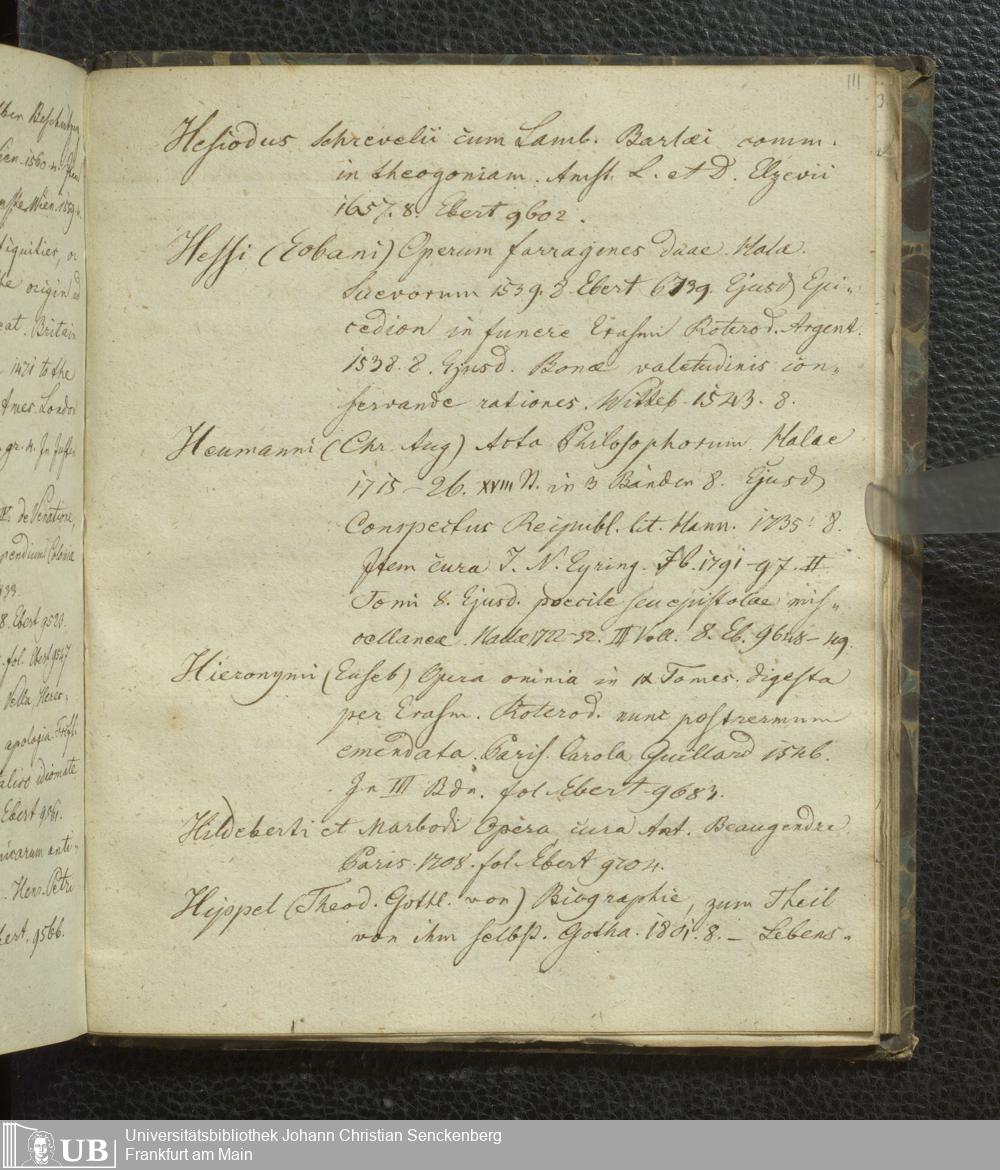 111
Hesiodus Schrevelii cum Lamb. Barlæi comm.
in theogoniam. Amst. L. et D. Elzevii
1657. 8. Ebert 9602.
Hessi (Eobani) Operum farragines duae. Halæ
Suevorum 1539. 8. Ebert 6739. Ejusd. Epi-
cedion in funere Erasmi Roterod. Argent.
1538. 8. Ejusd. Bonæ valetudinis con-
servande rationes. Witteb. 1543. 8.
Heumanni (Chr. Aug) Acta Philosophorum Halae
1715-26. XVIII St. in 3 Bänden 8. Ejusd
Conspectus Reipubl. lit. Hann. 1735. 8.
Item cura J. N. Eyring. Ib. 1791-97. II
Tomi 8. Ejusd. poecile seu epistolae mis-
cellanea. Halae 1722-32. III Voll. 8. Eb. 9648-49.
Hieronymi (Euseb) Opera omnia in IX Tomes. digesta
per Erasm. Roterod. nunc postremum
emendata. Paris. Carola Guillard 1546.
In III Bdn. fol. Ebert 9683.
Hildeberti et Marbodi Opera, cura Ant. Beaugendre
Paris. 1708. fol. Ebert 9704.
Hippel (Theod. Gottl. von) Biographie, zum Theil
von ihm selbst. Gotha. 1801. 8. – Lebens-
ben Beschützung
Wien. 1560
Wien. 1559
tiquities, or
the origin
eat. Britain
1471 to the
Ames. London
de Venatione,
pendium Colonia
8. Ebert 9520.
fol. Ebert 9547
Vella Heres-
apologia.
idiomate
Ebert 9561.
nicarum anti-
Henr. Petri
bert. 9566.
UB
Universitätsbibliothek Johann Christian Senckenberg
Frankfurt am Main